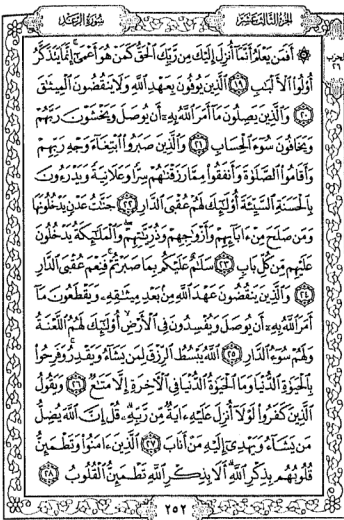 الجزء الثالث عشر
سورة الرعد
الحزب ٢٦
۞ أَفَمَن يَعْلَمُ أَنَّمَآ أُنزِلَ إِلَيْكَ مِن رَّبِّكَ ٱلْحَقُّ كَمَنْ هُوَ أَعْمَىٰٓ إِنَّمَا يَتَذَكَّرُ
أُوْلُواْ ٱلْأَلْبَٰبِ ١٩ ٱلَّذِينَ يُوفُونَ بِعَهْدِ ٱللَّهِ وَلَا يَنقُضُونَ ٱلْمِيثَٰقَ
٢٠ وَٱلَّذِينَ يَصِلُونَ مَآ أَمَرَ ٱللَّهُ بِهِۦٓ أَن يُوصَلَ وَيَخْشَوْنَ رَبَّهُمْ
وَيَخَافُونَ سُوٓءَ ٱلْحِسَابِ ٢١ وَٱلَّذِينَ صَبَرُواْ ٱبْتِغَآءَ وَجْهِ رَبِّهِمْ
وَأَقَامُواْ ٱلصَّلَوٰةَ وَأَنفَقُواْ مِمَّا رَزَقْنَٰهُمْ سِرًّا وَعَلَانِيَةً وَيَدْرَءُونَ
بِٱلْحَسَنَةِ ٱلسَّيِّئَةَ أُوْلَٰٓئِكَ لَهُمْ عُقْبَى ٱلدَّارِ ٢٢ جَنَّٰتُ عَدْنٍ يَدْخُلُونَهَا
وَمَن صَلَحَ مِنْ ءَابَآئِهِمْ وَأَزْوَٰجِهِمْ وَذُرِّيَّٰتِهِمْ وَٱلْمَلَٰٓئِكَةُ يَدْخُلُونَ
عَلَيْهِم مِّن كُلِّ بَابٍ ٢٣ سَلَٰمٌ عَلَيْكُم بِمَا صَبَرْتُمْ فَنِعْمَ عُقْبَى ٱلدَّارِ
٢٤ وَٱلَّذِينَ يَنقُضُونَ عَهْدَ ٱللَّهِ مِنۢ بَعْدِ مِيثَٰقِهِۦ وَيَقْطَعُونَ مَآ
أَمَرَ ٱللَّهُ بِهِۦٓ أَن يُوصَلَ وَيُفْسِدُونَ فِى ٱلْأَرْضِ أُوْلَٰٓئِكَ لَهُمُ ٱللَّعْنَةُ
وَلَهُمْ سُوٓءُ ٱلدَّارِ ٢٥ ٱللَّهُ يَبْسُطُ ٱلرِّزْقَ لِمَن يَشَآءُ وَيَقْدِرُ وَفَرِحُواْ
بِٱلْحَيَوٰةِ ٱلدُّنْيَا وَمَا ٱلْحَيَوٰةُ ٱلدُّنْيَا فِى ٱلْأَخِرَةِ إِلَّا مَتَٰعٌ ٢٦ وَيَقُولُ
ٱلَّذِينَ كَفَرُواْ لَوْلَآ أُنزِلَ عَلَيْهِ ءَايَةٌ مِّن رَّبِّهِۦ قُلْ إِنَّ ٱللَّهَ يُضِلُّ
مَن يَشَآءُ وَيَهْدِىٓ إِلَيْهِ مَنْ أَنَابَ ٢٧ ٱلَّذِينَ ءَامَنُواْ وَتَطْمَئِنُّ
قُلُوبُهُم بِذِكْرِ ٱللَّهِ أَلَا بِذِكْرِ ٱللَّهِ تَطْمَئِنُّ ٱلْقُلُوبُ ٢٨
٢٥٢